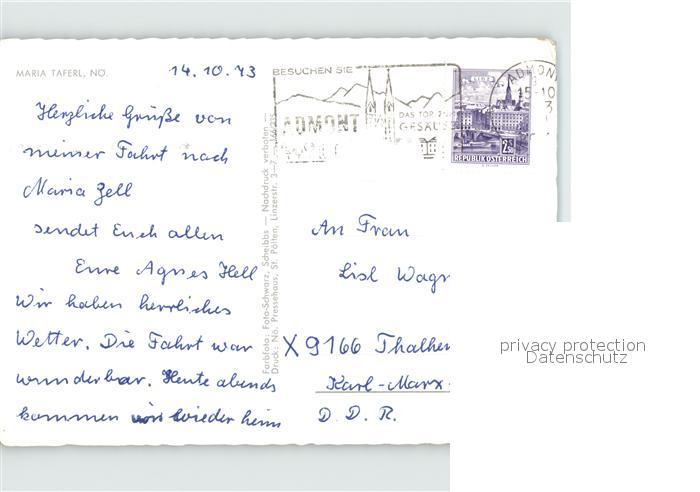 MARIA TAFERL, NÖ.
14.10.73
Herzliche Grüße von
meiner Fahrt nach
Maria Zell
sendet Euch allen
Eure Agnes Hell
Wir haben herrliches
Wetter. Die Fahrt war
wunderbar. Heute abends
kommen wir wieder heim
Farbfoto: Foto-Schwarz, Scheibbs — Nachdruck verboten —
Druck: Nö. Pressehaus, St. Pölten, Linzerstr. 3–7
BESUCHEN SIE
ADMONT
DAS TOR ZUM
GESÄUSE
ADMONT
LINZ
2.50
REPUBLIK ÖSTERREICH
An Frau
Lisl Wagn
X 9166 Thalhei
Karl-Marx-
D. D. R.
privacy protection
Datenschutz